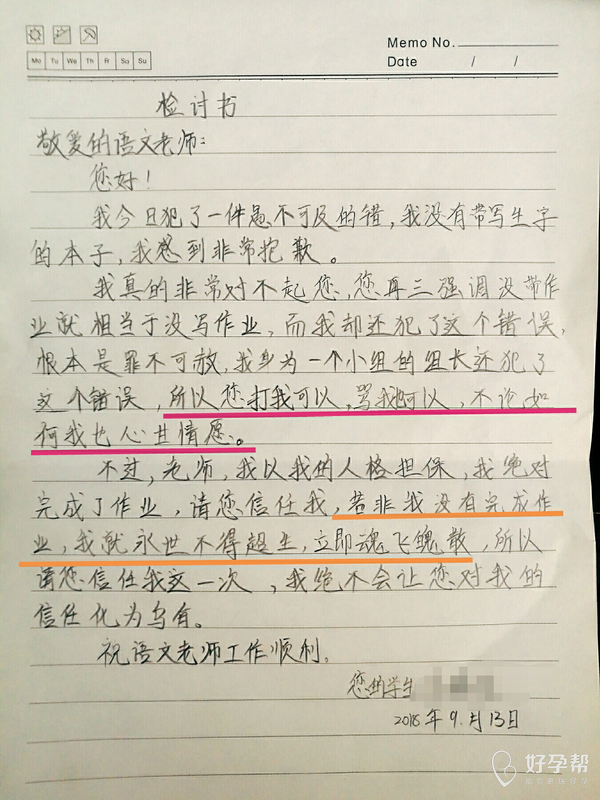 Memo No.
Mo Tu We Th Fr Sa Su
Date / /
检讨书
敬爱的语文老师:
您好!
我今日犯了一件愚不可及的错,我没有带写生字
的本子,我感到非常抱歉。
我真的非常对不起您,您再三强调没带作
业就相当于没写作业,而我却还犯了这个错误,
根本是罪不可赦,我身为一个小组的组长还犯了
这个错误,所以您打我可以,骂我可以,不论如
何我也心甘情愿。
不过,老师,我以我的人格担保,我绝对
完成了作业,请您信任我,若非我没有完成作
业,我就永世不得超生,立即魂飞魄散,所以
请您信任我这一次,我绝不会让您对我的
信任化为乌有。
祝语文老师工作顺利。
您的学生
2018年9月13日
好孕帮